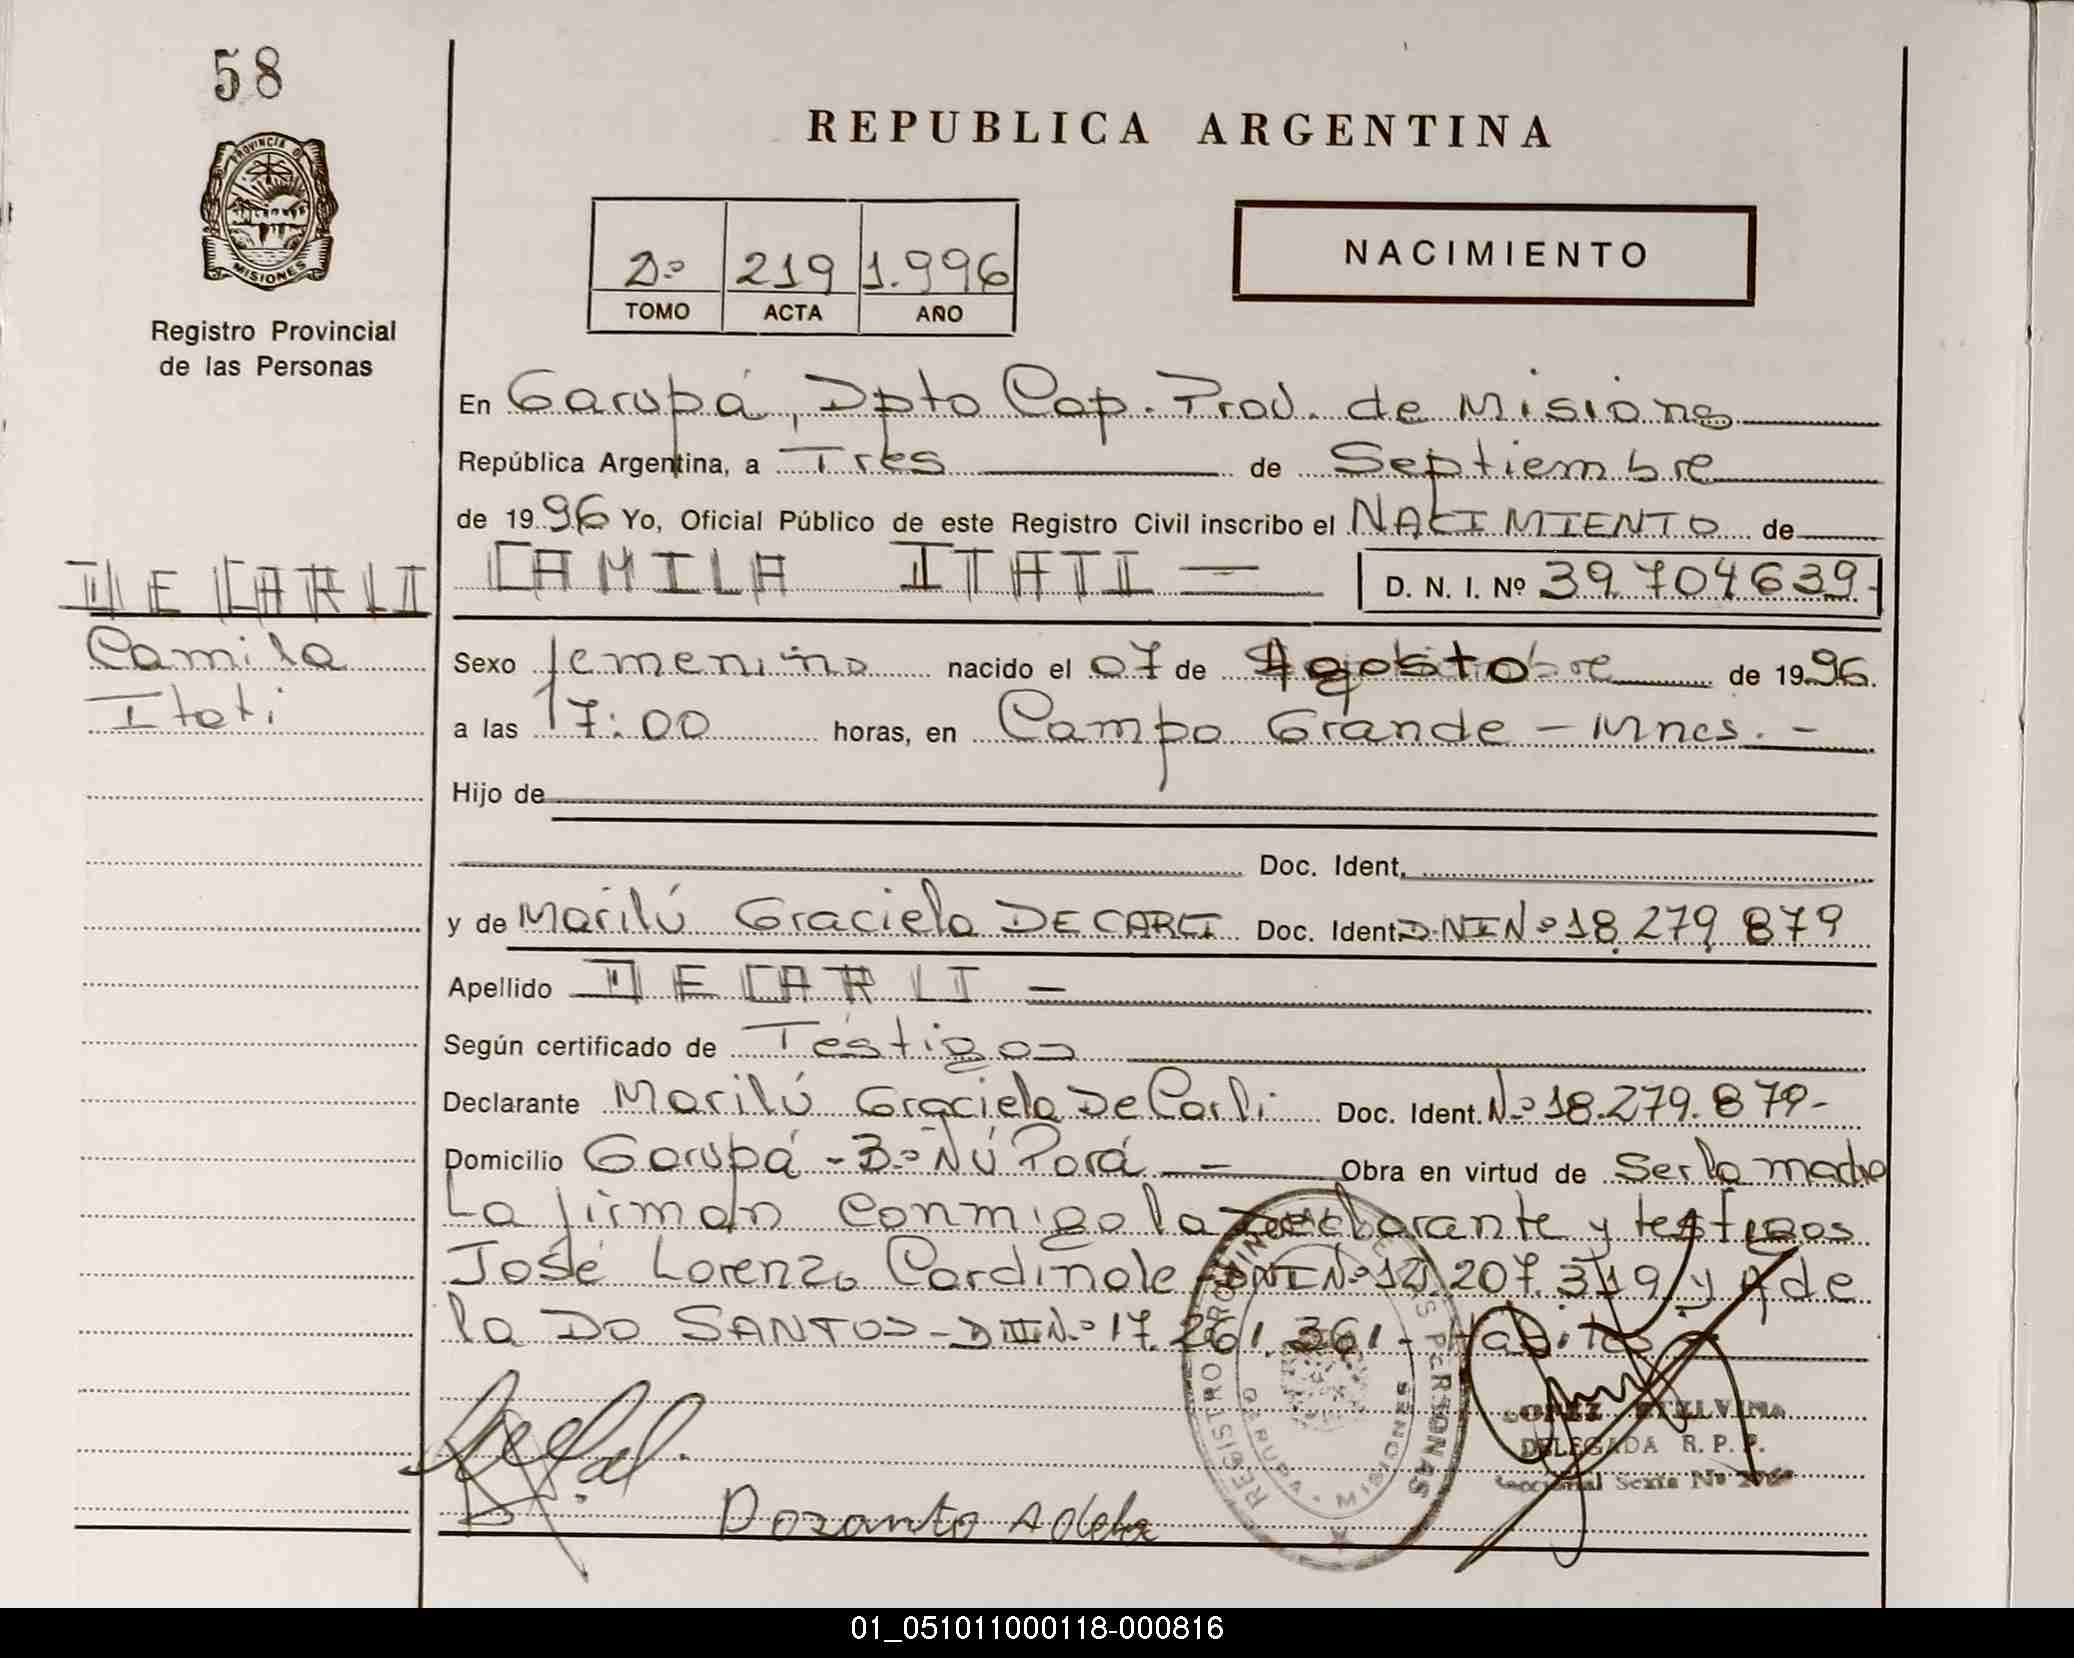 58
PROVINCIA DE
MISIONES
Registro Provincial
de las Personas
REPUBLICA ARGENTINA
2º 219 1.996
TOMO ACTA AÑO
NACIMIENTO
En Garupá, Dpto Cap. Prov. de Misiones
República Argentina, a Tres de Septiembre
de 1996 Yo, Oficial Público de este Registro Civil inscribo el NACIMIENTO de
DE CARLI
CAMILA ITATI = D. N. I. Nº 39.704639-
Camila
Itati
Sexo femenino nacido el 07 de Agosto de 1996.
a las 17:00 horas, en Campo Grande - Mnes. -
Hijo de
Doc. Ident.
y de Marilú Graciela DE CARLI Doc. Ident. DNI Nº 18.279 879
Apellido DE CARLI -
Según certificado de Testigos
Declarante Marilú Graciela De Carli Doc. Ident. Nº 18.279.879-
Domicilio Garupá - Bº Ñú Porá - Obra en virtud de Ser la madre
La firman conmigo la declarante y testigos
José Lorenzo Cardinale - DNI Nº 12.207.319 y Ade
la DO SANTOS - DNI Nº 17.261.361 - Habiles
REGISTRO PROVINCIAL DE LAS PERSONAS
GARUPA - MISIONES
LOPEZ ETELVINA
DELEGADA R. P. P.
Seccional Sexta Nº
Dozanto Adela
01_051011000118-000816